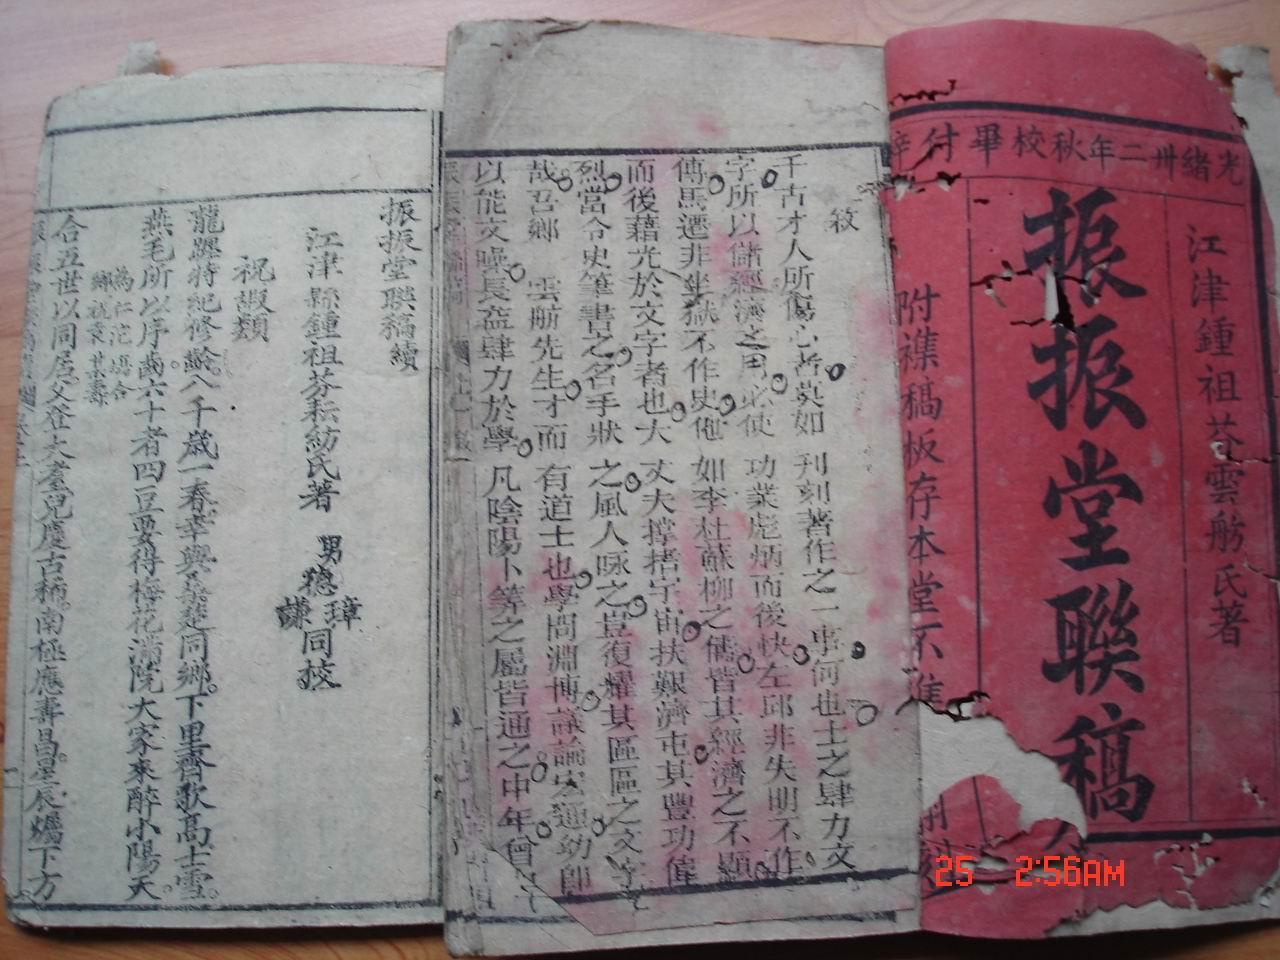 光緒卅二年秋校畢付梓
江津鍾祖芬雲舫氏著
振振堂聯稿
附襍稿板存本堂不准
翻刻
敘
千古才人所傷心者莫如刊刻著作之一事何也士之肆力文
字所以儲經濟之用必使功業彪炳而後快左邱非失明不作
傳馬遷非坐獄不作史他如李杜蘇柳之儔皆其經濟之不顯
而後藉光於文字者也大丈夫撐拄宇宙扶艱濟屯其豐功偉
烈當令史筆書之名手狀之風人咏之豈復耀其區區之文字
哉吾鄉 雲舫先生才而有道士也學問淵博議論宏通幼即
以能文噪長益肆力於學凡陰陽卜筭之屬皆通之中年曾
振振堂聯稿續
江津縣鍾祖芬耘舫氏著 男 德 璋 謙 同校
祝嘏類
龍躔特紀修齡八千歲一春幸與桑楚同鄉下里齊歌高士雪
燕毛所以序齒六十者四豆要得梅花滿院大家來醉小陽天
為仁沱場合
鄉祝袁某壽
合五世以同居父登大耋兒慶古稀南極應壽昌星辰燭下方